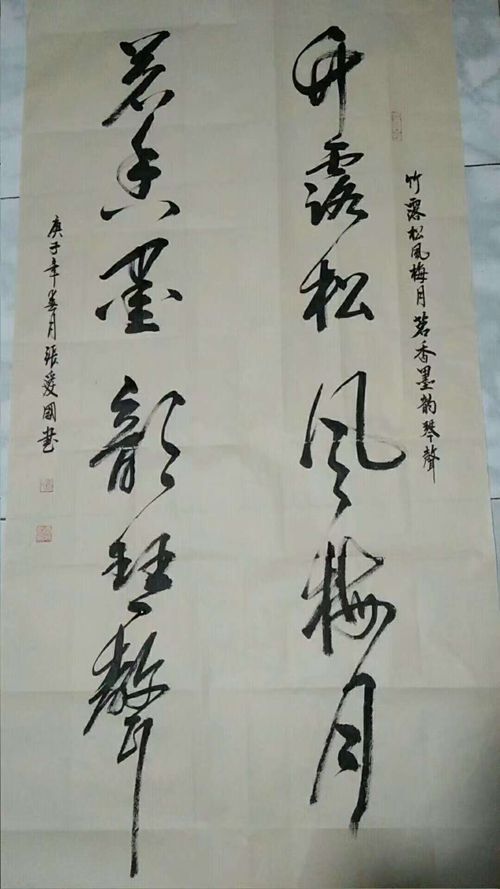 竹露松风梅月茗香墨韵琴聲
竹露松风梅月
茗香墨韵琴聲
庚子年春月张爱國书